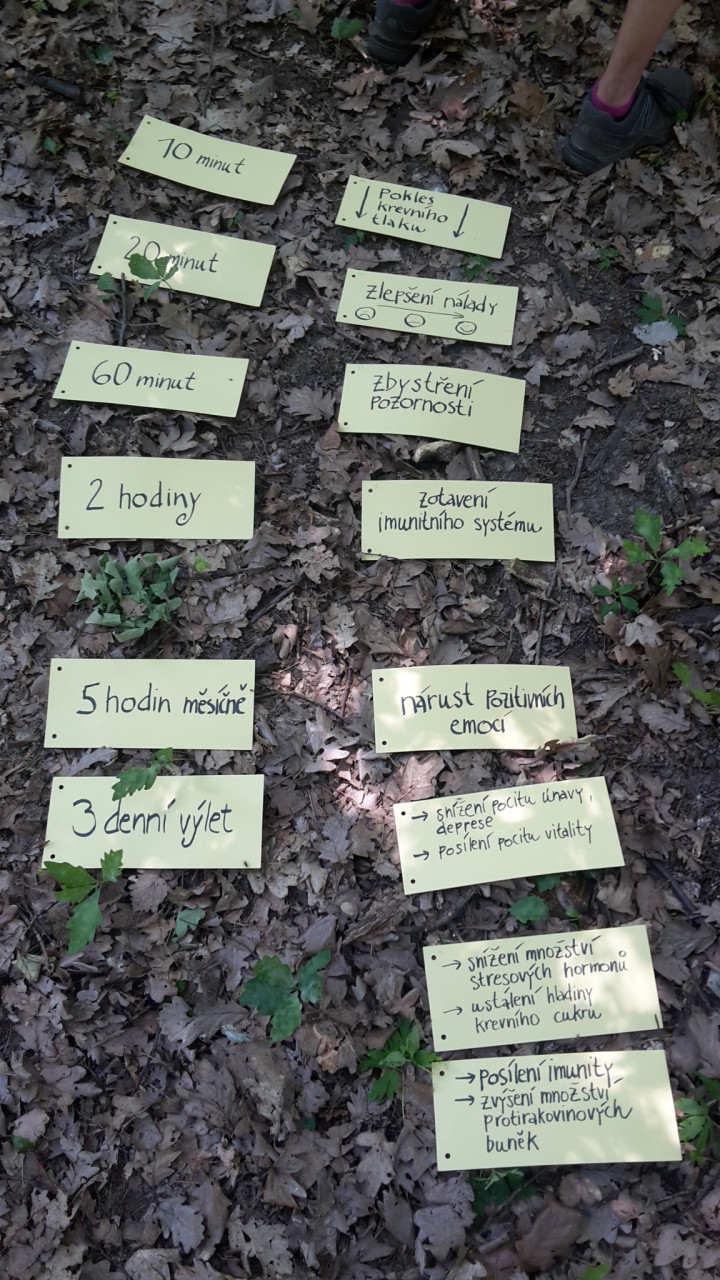 10 minut
20 minut
60 minut
2 hodiny
5 hodin měsíčně
3 denní výlet
Pokles
krevního
tlaku
Zlepšení nálady
zbystření
pozornosti
zotavení
imunitního systému
nárust pozitivních
emocí
→ snížení pocitu únavy,
deprese
→ posílení pocitu vitality
→ snížení množství
stresových hormonů
→ ustálení hladiny
krevního cukru
→ posílení imunity
→ zvýšení množství
protirakovinových
buněk